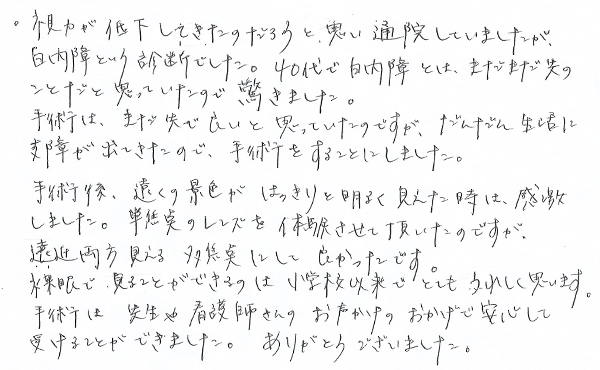 。視力が低下してきたのだろうと思い通院していましたが、
白内障という診断でした。40代で白内障とは、まだまだ先の
ことだと思っていたので驚きました。
手術は、まだ先で良いと思っていたのですが、だんだん生活に
支障が出てきたので、手術をすることにしました。
手術後、遠くの景色がはっきりと明るく見えた時は、感激
しました。単焦点のレンズを体験させて頂いたのですが、
遠近両方見える多焦点にして良かったです。
裸眼で見ることができるのは小学校以来でとてもうれしく思います。
手術は先生や看護師さんのお声かけのおかげで安心して
受けることができました。ありがとうございました。